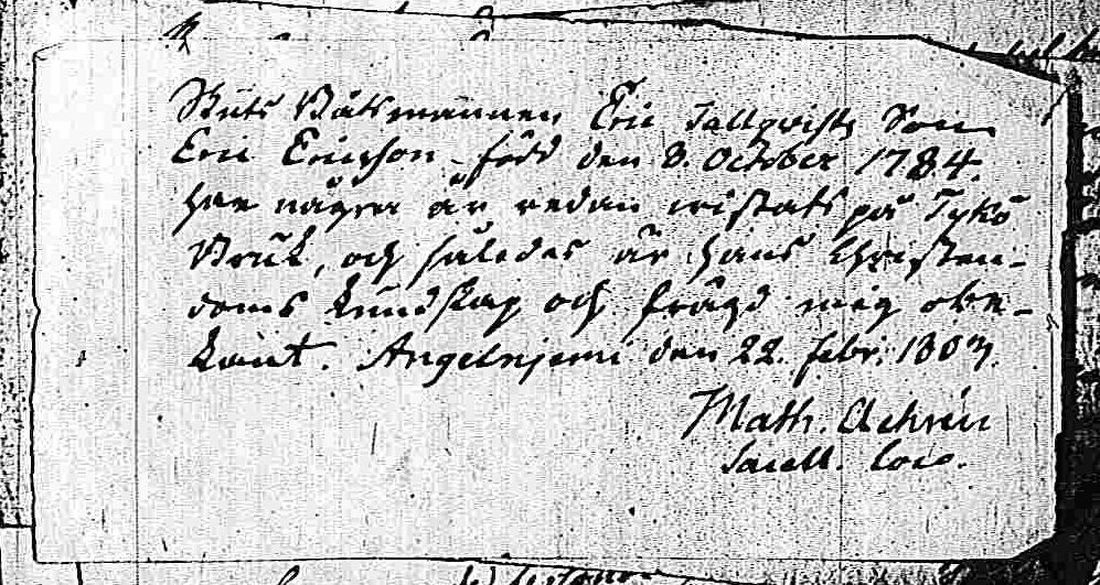 Skuts Båtsmannen Eric Tallqvists Son
Eric Ericsson, född den 8. October 1784.
har några år redan vistats på Tykö
Bruk, och således är hans Christen-
doms kundskap och frägd mig obe-
kant. Angelniemi den 22. febr. 1803.
Math. Achrén
Sacell. loci.